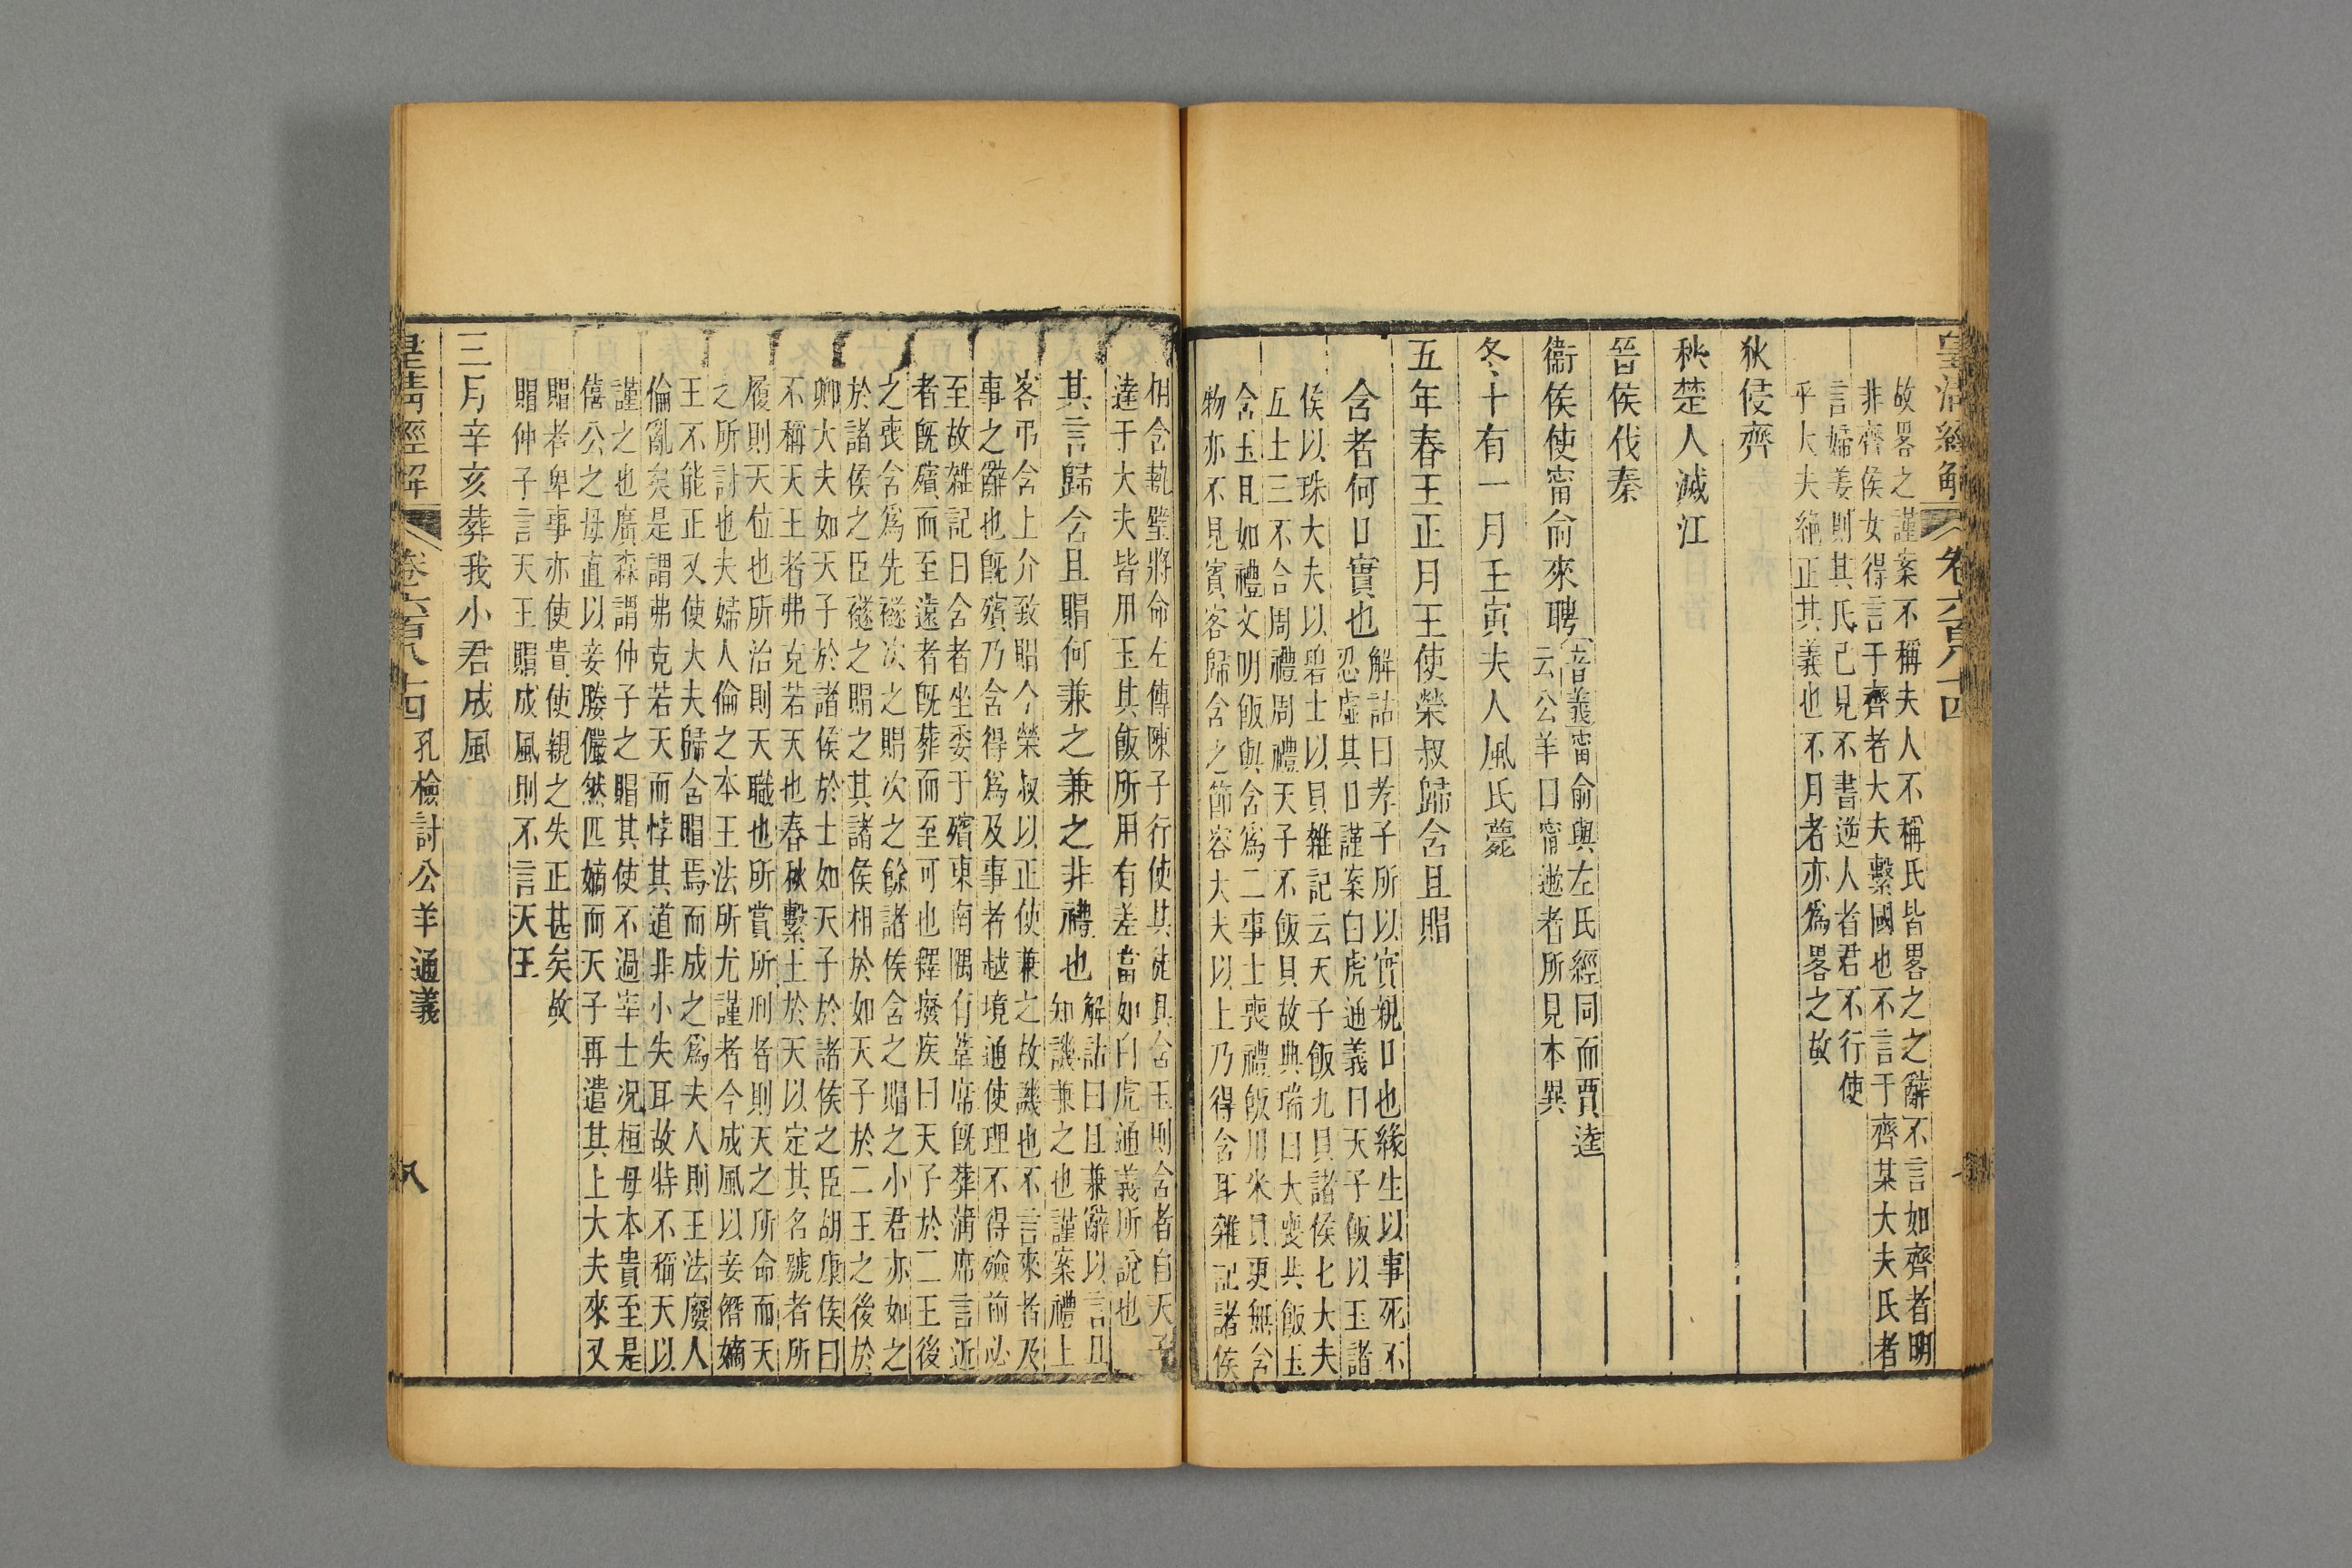 皇清經解 卷六百八十四
故畧之謹案不稱夫人不稱氏皆畧之之辭不言如齊者明
非齊侯女得言于齊者大夫繫國也不言于齊某大夫氏者
言婦姜則其氏已見不書逆人者君不行使
乎大夫絶正其義也不月者亦為畧之故
狄侵齊
秋楚人滅江
晉侯伐秦
衞侯使甯俞來聘
音義甯俞與左氏經同而賈逵
云公羊曰甯遬者所見本異
冬十有一月壬寅夫人風氏薨
五年春王正月王使榮叔歸含且賵
含者何口實也
解詁曰孝子所以實親口也緣生以事死不
忍虛其口謹案白虎通義曰天子飯以玉諸
侯以珠大夫以碧士以貝雜記云天子飯九貝諸侯七大夫
五士三不合周禮周禮天子不飯貝故典瑞曰大喪共飯玉
含玉且如禮文明飯與含為二事士喪禮飯用米貝更無含
物亦不見賓客歸含之節容大夫以上乃得含耳雜記諸侯
相含執璧將命左傳陳子行使其徒具含玉則含者自天子
達于大夫皆用玉其飯所用有差當如白虎通義所說也
其言歸含且賵何兼之兼之非禮也
解詁曰且兼辭以言且
知譏兼之也謹案禮上
客弔含上介致賵今榮叔以正使兼之故譏也不言來者及
事之辭也旣殯乃含得為及事者越境通使理不得殮前必
至故雜記曰含者坐委于殯東南隅有葦席旣葬蒲席言近
者旣殯而至遠者旣葬而至可也釋廢疾曰天子於二王後
之喪含為先襚次之賵次之餘諸侯含之賵之小君亦如之
於諸侯之臣襚之賵之其諸侯相於如天子於二王之後於
卿大夫如天子於諸侯於士如天子於諸侯之臣胡康侯曰
不稱天王者弗克若天也春秋繫王於天以定其名號者所
履則天位也所治則天職也所賞所刑者則天之所命而天
之所討也夫婦人倫之本王法所尤謹者今成風以妾僭嫡
王不能正又使大夫歸含賵焉而成之為夫人則王法廢人
倫亂矣是謂弗克若天而悖其道非小失耳故特不稱天以
謹之也廣森謂仲子之賵其使不過宰士况桓母本貴至是
僖公之母直以妾媵儼然匹嫡而天子再遣其上大夫來又
賵者卑事亦使貴使親之失正甚矣故
賵仲子言天王賵成風則不言天王
三月辛亥葬我小君成風
皇清經解 卷六百八十四 孔檢討公羊通義 八